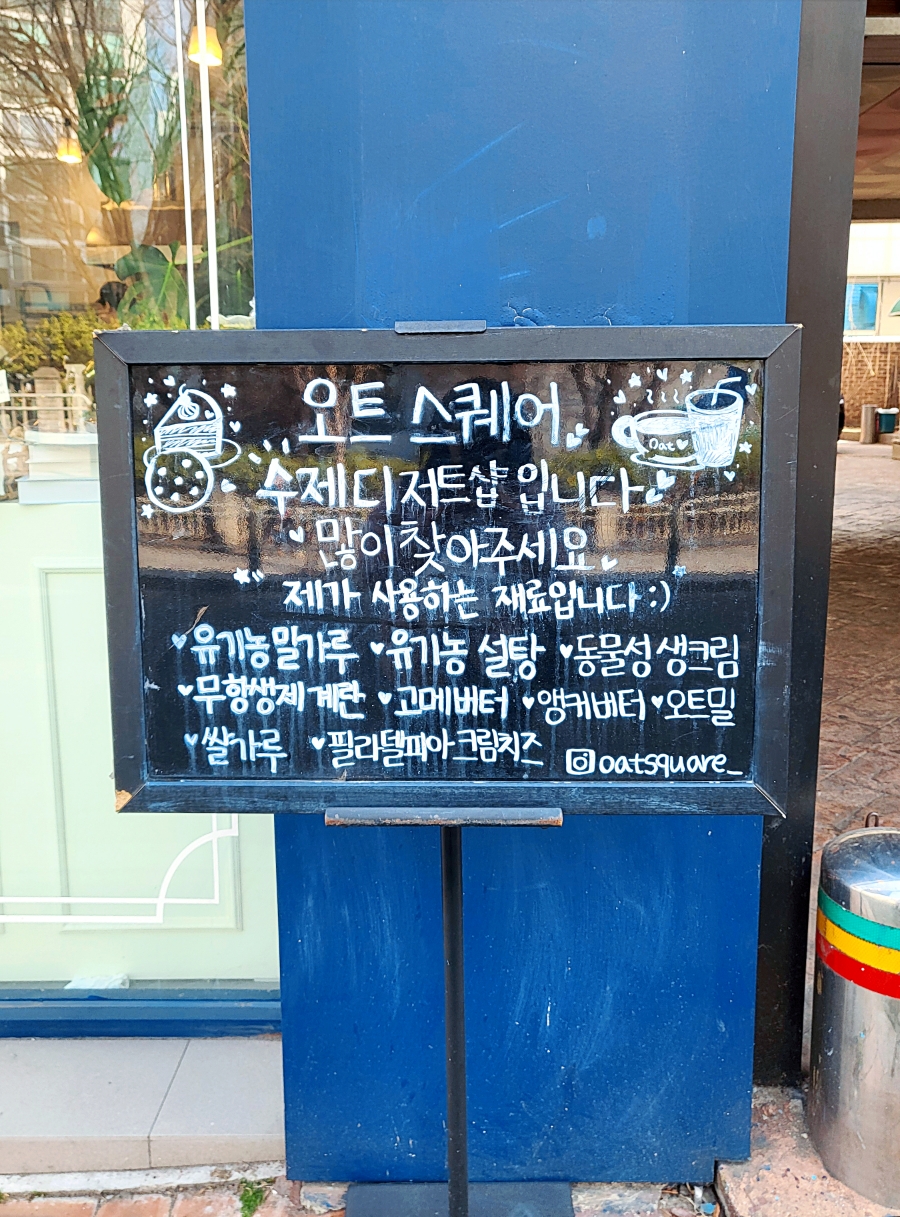 오트 스퀘어
Oat
수제디저트샵 입니다
많이찾아주세요
제가 사용하는 재료입니다 :)
♥유기농밀가루 ♥유기농 설탕 ♥동물성 생크림
♥무항생제계란 ♥고메버터 ♥앵커버터 ♥오트밀
♥쌀가루 ♥필라델피아크림치즈 oatsquare_